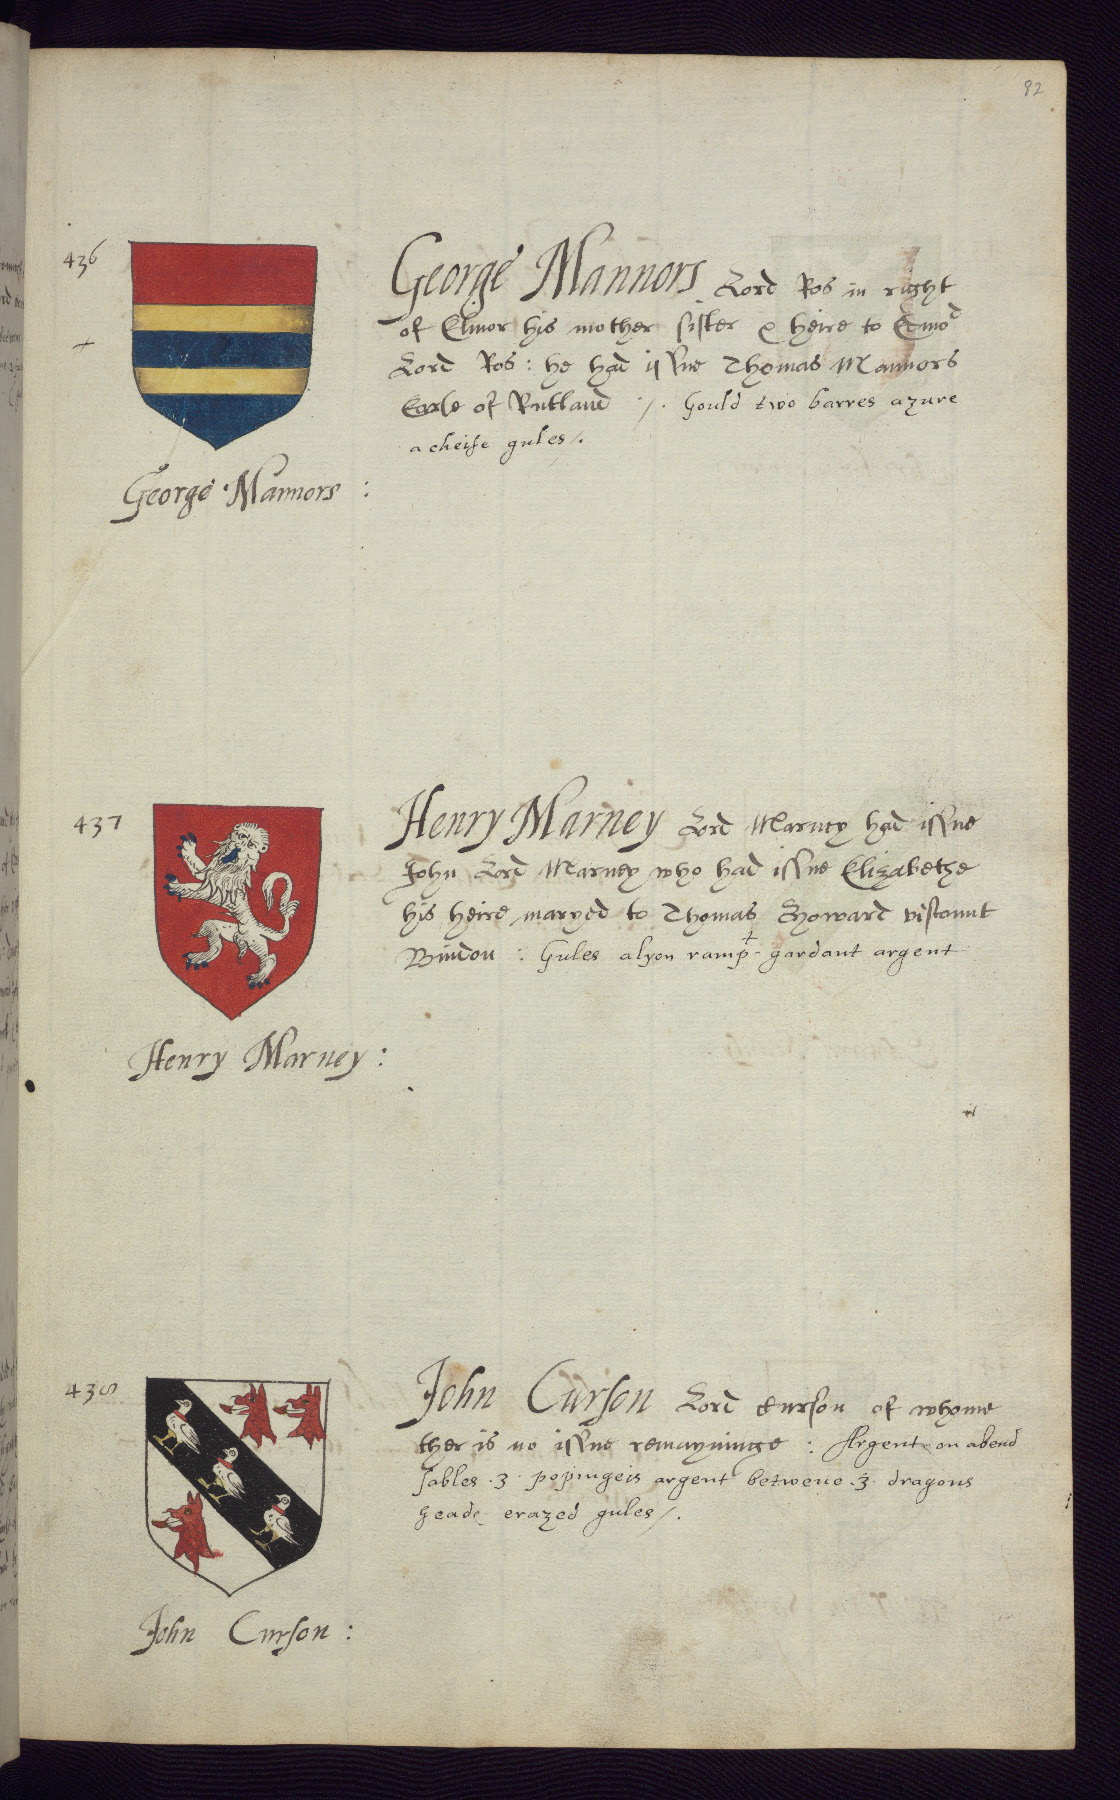 92
436
George Mannors Lord Ros in right
of Elinor his mother sister & heire to Edmod
Lord Ros : he had issue Thomas Mannors
Earle of Rutland ·/. Gould two barres azure
a cheife gules/.
George · Mannors :
437
Henry Marney Lord Marney had issue
John Lord Marney who had issue Elizabethe
his heire maryed to Thomas Howard viscount
Bindon : Gules a lyon rampt gardant argent
Henry Marney :
438
John Curson Lord Curson of whome
ther is no issue remayninge : Argent on a bend
sables ·3· popingeis argent betwene ·3· dragons
heade erazed gules/.
John Curson :